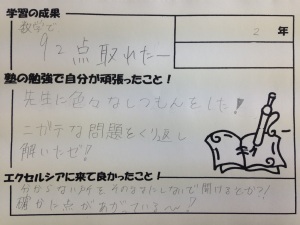 学習の成果
2 年
数学で
92点取れたー
塾の勉強で自分が頑張ったこと！
先生に色々なしつもんをした!
ニガテな問題をくり返し
解いたぜ!
エクセルシアに来て良かったこと！
分からない所をそのままにしないで聞けることかつ!
確かに点があがている〜?